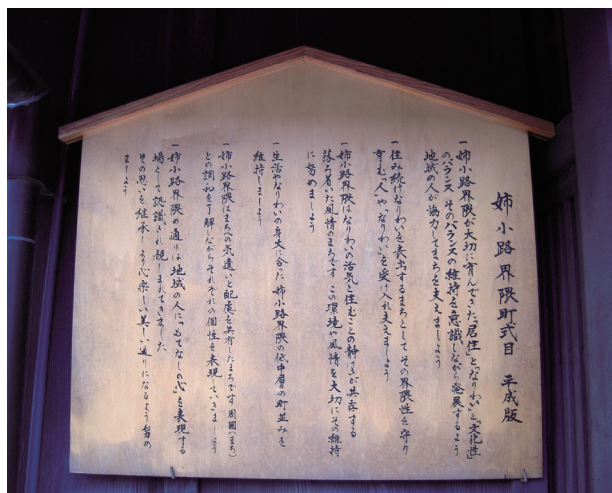 姉小路界隈町式目 平成版
一 姉小路界隈が大切に育んできた「居住」と「なりわい」と「文化性」
のバランス そのバランスの維持を意識しながら発展するよう
地域の人が協力してまちを支えましょう
一 住み続けなりわいを表出するまちとして その界隈性を守り
育む「人」や「なりわい」を受け入れ支えましょう
一 姉小路界隈はなりわいの活気と住むことの静けさが共存する
落ち着いた風情のまちです この環境や風情を大切にその維持
に努めましょう
一 生活やなりわいの身丈に合った姉小路界隈の低中層の町並みを
維持しましょう
一 姉小路界隈はまちへの気遣いと配慮を共有したまちです 周囲(まち)
との調和を了解しながらそれぞれの個性を表現していきましょう
一 姉小路界隈の通りは地域の人に「もてなしの心」を表現する
場として認識され親しまれてきました
その思いを継承しより心楽しい美しい通りになるよう努め
ましょう